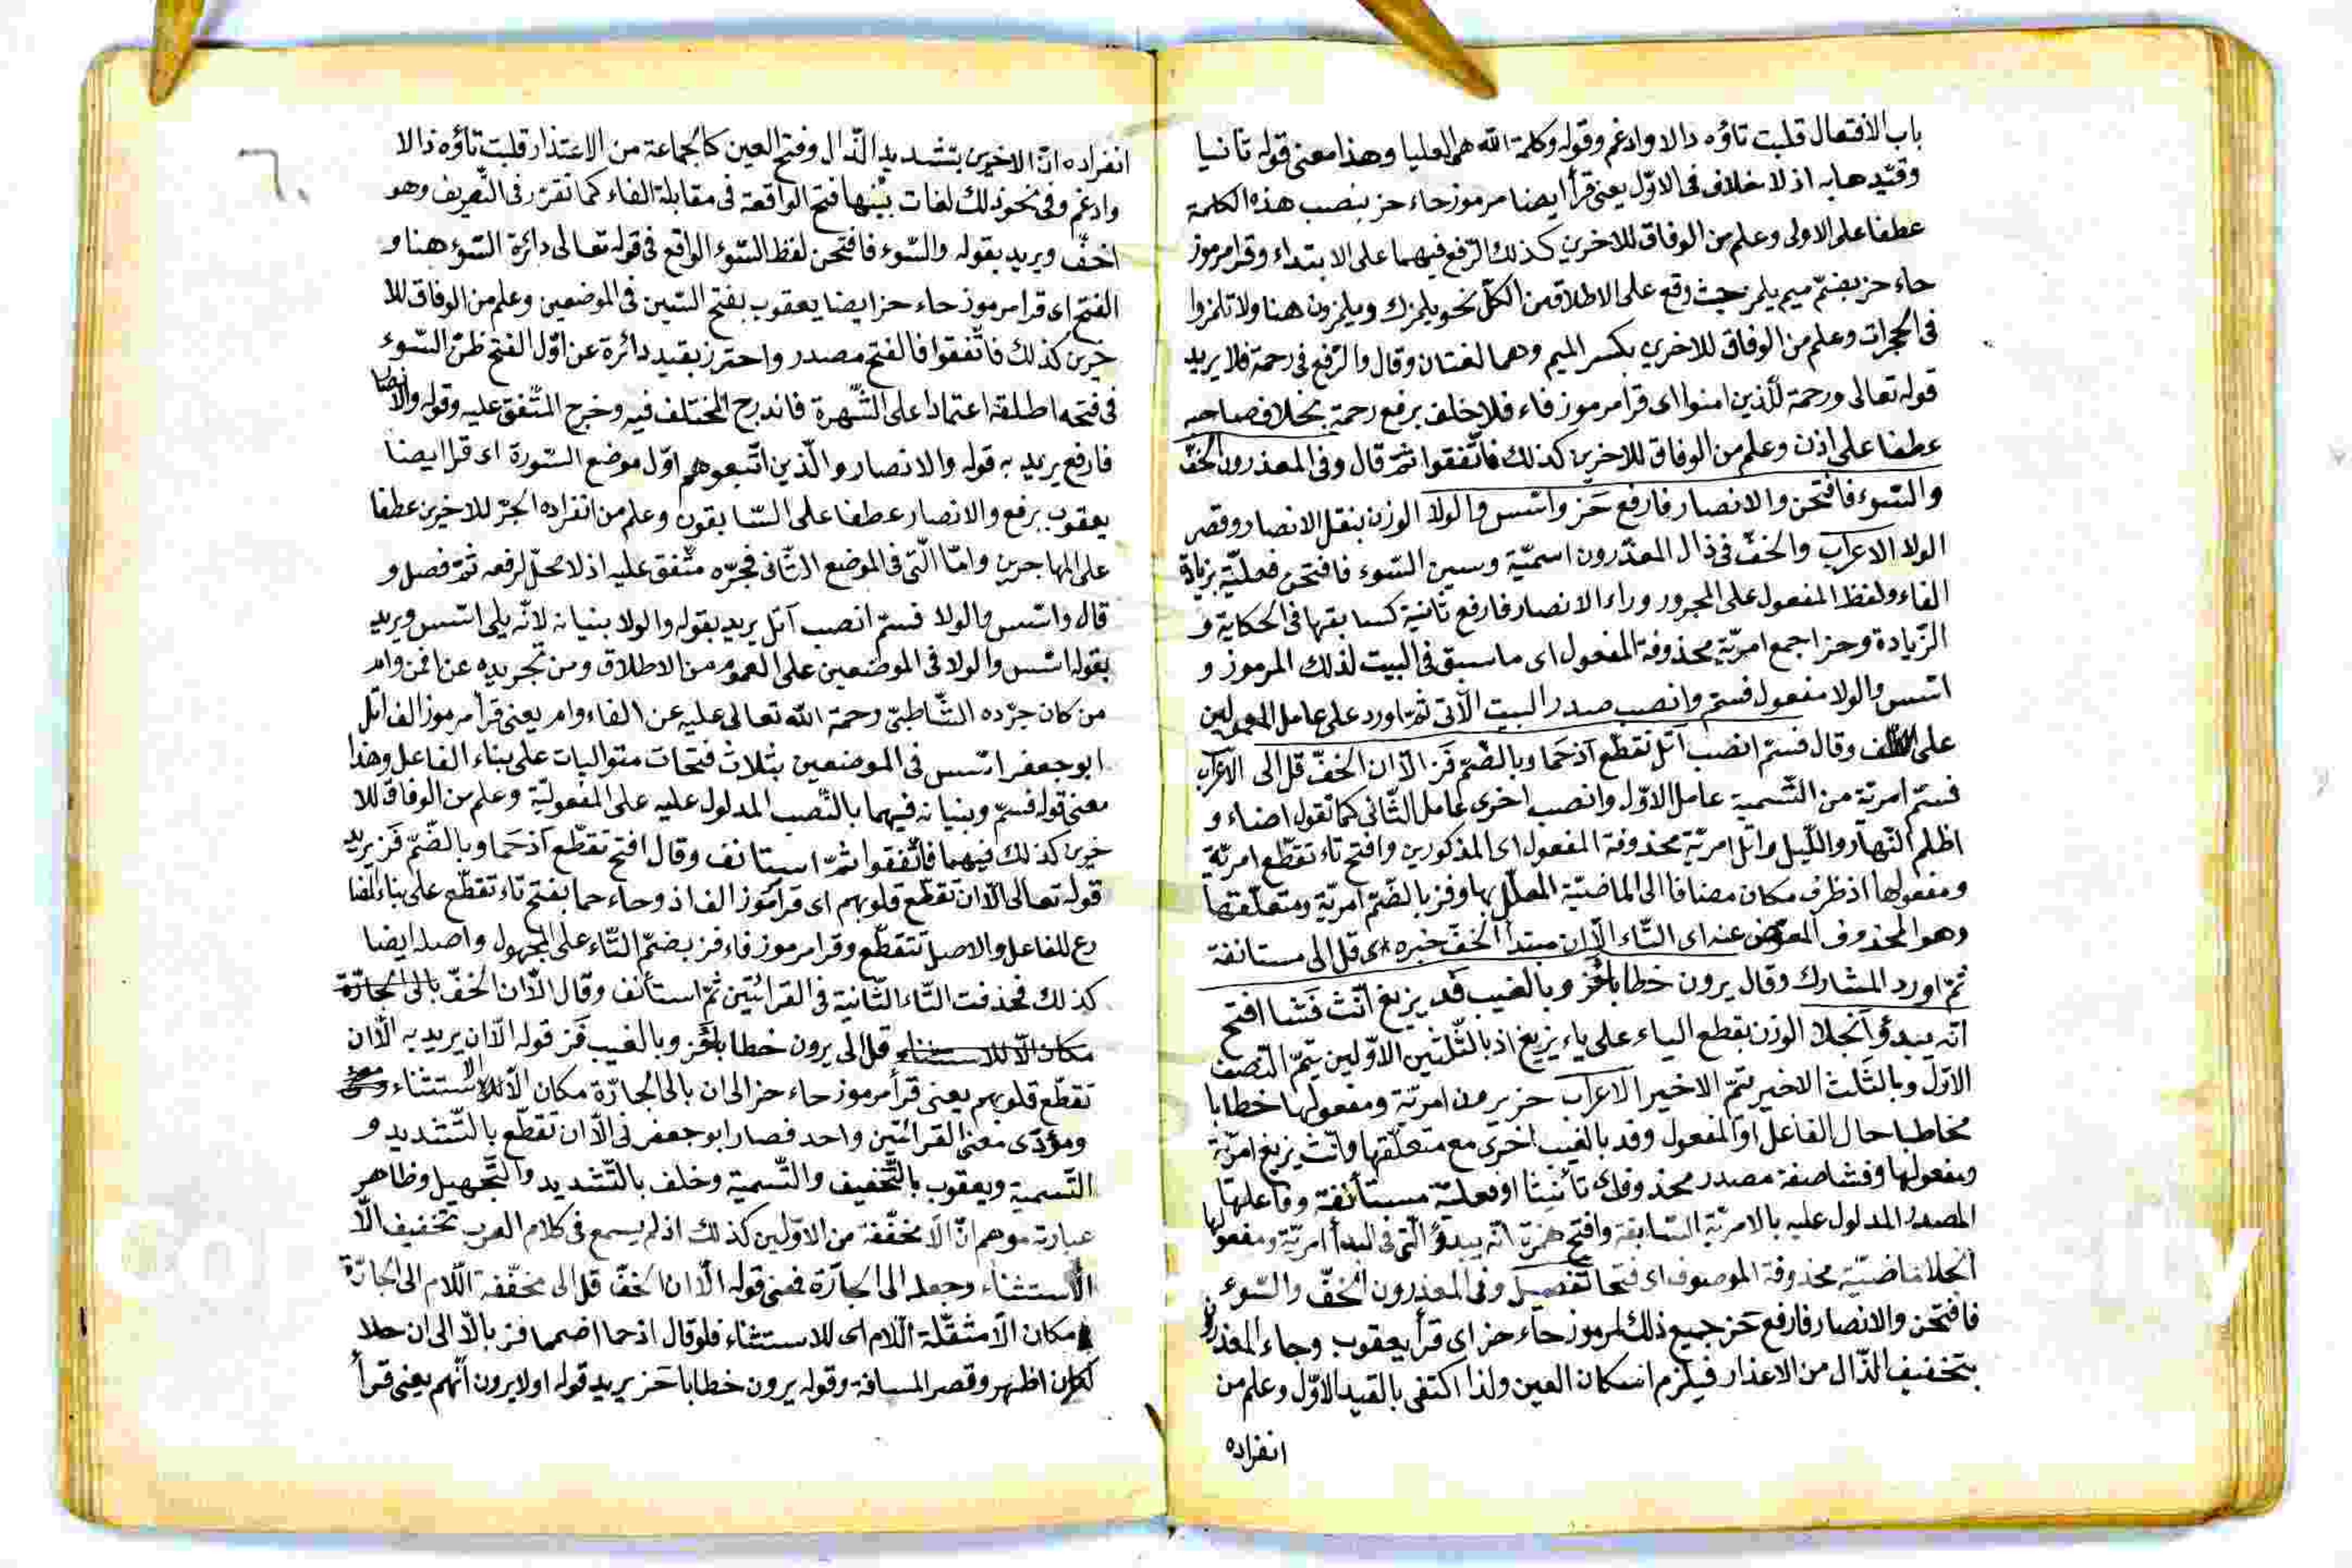 باب الافتعال قلبت تاؤه دالا وادغم وقوله وكلمة الله هي العليا وهذا معنى قوله ثانيا
وقيّدها به اذ لا خلاف في الاوّل يعني قرأ ايضا مرموز حاء حز بنصب هذه الكلمة
عطفا على الاولى وعلم من الوفاق للاخرين كذلك الرّفع فيهما على الابتداء وقرا مرموز
حاء حز بضمّ ميم يلمز حيث وقع على الاطلاق من الكلّ نحو يلمزك ويلمزون هنا ولا تلمزوا
في الحجرات وعلم من الوفاق للاخرين بكسر الميم وهما لغتان وقال والرّفع في رحمة فلا يريد
قوله تعالى ورحمة للّذين امنوا اى قرا مرموز فاء فلا خلف برفع رحمة بخلاف صاحبه
عطفا على اذن وعلم من الوفاق للاخرين كذلك فاتّفقوا ثمّ قال وفى المعذرون الخفّ
والسّوء فافتحن والانصار فارفع حز واسّس والولا الوزن بنقل الانصار وقصر
الولا الاعراب والخفّ في ذال المعذّرون اسميّة وسين السّوء فافتحن فعليّة بزيادة
الفاء ولفظ المفعول على المجرور وراء الانصار فارفع ثانية كسابقها في الحكاية و
الزّيادة وحز اجمع امريّة محذوفة المفعول اى ما سبق في البيت لذلك المرموز و
اسّس والولا مفعول فسمّ وانصب صدر البيت الآتى ثمّ اورد على عامل المعمولين
على وقال فسمّ انصب اتل تقطّع اذ حما وبالضّمّ فز الّا ان الخفّ قل الى الاعراب
فسمّ امريّة من التّسمية عامل الاوّل وانصب اخرى عامل الثّانى كما تقول اضاء و
اظلم النّهار واللّيل واتل امريّة محذوفة المفعول اى المذكورين وافتح تاء تقطّع امريّة
ومفعولها اذ ظرف مكان مضافا الى الماضيّة المعلّل بها وفز بالضّمّ امريّة ومتعلّقتها
وهو المحذوف المعوّض عنه اى التّاء الّا ان مبتدأ الخفّ خبره قل الى مستانفة
ثمّ اورد المشارك وقال يرون خطابا حز وبالغيب فد يزيغ انّث فشا افتح
انّه يبدؤ انجلا الوزن بقطع الياء على ياء يزيغ اذ بالثّلثين الاوّلين يتمّ النّصف
الاوّل وبالثّلث الاخير يتمّ الاخير الاعراب حز يرون امريّة ومفعولها خطابا
مخاطبا حال الفاعل او المفعول وفد بالغيب اخرى مع متعلّقها وانّث يزيغ امريّة
ومفعولها وفشا صفة مصدر محذوف اى تأنيثا او فعليّة مستأنفة وفاعلها
المصدر المدلول عليه بالامريّة السّابقة وافتح همزة انّه يبدؤ الّتى في البدأ امريّة ومفعولها
انجلا ماضيّة محذوفة الموصوف اى فتحا تفصيل وفى المعذرون الخفّ والسّوء
فافتحن والانصار فارفع حز جميع ذلك لمرموز حاء حز اى قرأ يعقوب وجاء المعذرون
بتخفيف الذّال من الاعذار فيلزم اسكان العين ولذا اكتفى بالقيد الاوّل وعلم من
انفراده
٦٠
انفراده انّ الاخرين بتشديد الذّال وفتح العين كالجماعة من الاعتذار قلبت تاؤه ذالا
وادغم وفى نحو ذلك لغات بيّنها فتح الواقعة في مقابلة الفاء كما تقرّر في التّصريف وهو
اخفّ ويريد بقوله والسّوء فافتحن لفظ السّوء الواقع في قوله تعالى دائرة السّوء هنا و
الفتح اى قرا مرموز حاء حز ايضا يعقوب بفتح السّين في الموضعين وعلم من الوفاق للا
خرين كذلك فاتّفقوا فالفتح مصدر واحترز بقيد دائرة عن اوّل الفتح ظنّ السّوء
في فتحه اطلقه اعتمادا على الشّهرة فاندرج المختلف فيه وخرج المتّفق عليه وقوله والانصار
فارفع يريد به قوله والانصار والّذين اتّبعوهم اوّل موضع السّورة اى قرا ايضا
يعقوب برفع والانصار عطفا على السّابقون وعلم من انفراده الجرّ للاخرين عطفا
على المهاجرين وامّا الّتى في الموضع الثّانى فجرّه متّفق عليه اذ لا محلّ لرفعه ثمّ فصل و
قال واسّس والولا فسمّ انصب اتل يريد بقوله والولا بنيانه لانّه يلى اسّس ويريد
بقوله اسّس والولا في الموضعين على العموم من الاطلاق ومن تجريده عن افمن وام
من كان جرّده الشّاطبىّ رحمة الله تعالى عليه عن الفاء وام يعنى قرأ مرموز الف اتل
ابو جعفر اسّس في الموضعين بثلاث فتحات متواليات على بناء الفاعل وهذا
معنى قوله فسمّ وبنيانه فيهما بالنّصب المدلول عليه على المفعوليّة وعلم من الوفاق للا
خرين كذلك فيهما فاتّفقوا ثمّ استانف وقال افتح تقطّع اذ حما وبالضّمّ فز يريد
قوله تعالى الّا ان تقطّع قلوبهم اى قرا مرموز الف اذ وحاء حما بفتح تاء تقطّع على بناء المضا
رع للفاعل والاصل تتقطّع وقرا مرموز فاء فز بضمّ التّاء على المجهول واصله ايضا
كذلك فحذفت التّاء الثّانية في القرائتين ثمّ استأنف وقال الّا ان الخفّ
قل الى يرون خطابا حز وبالغيب فز قوله الّا ان يريد به الّا ان
تقطّع قلوبهم يعنى قرأ مرموز حاء حز الى ان بالى الجارّة مكان الّا للاستثناء
ومؤدّى معنى القرائتين واحد فصار ابو جعفر في الّا ان تقطّع بالتّشديد و
التّسمية ويعقوب بالتّخفيف والتّسمية وخلف بالتّشديد والتّجهيل وظاهر
عبارته موهم انّ الّا مخفّفة من الاوّلين كذلك اذ لم يسمع في كلام العرب تخفيف الّا
الاستثناء وجعله الى الجارّة فمعنى قوله الّا ان الخفّ قل الى مخفّفة اللّام الى الجارّة
مكان الّا مثقّلة اللّام اى للاستثناء فلو قال اذ حما اضمما فز بالّا الى ان حلا
لكان اظهر وقصر المسافة وقوله يرون خطابا حز يريد قوله اولا يرون انّهم يعنى قرأ